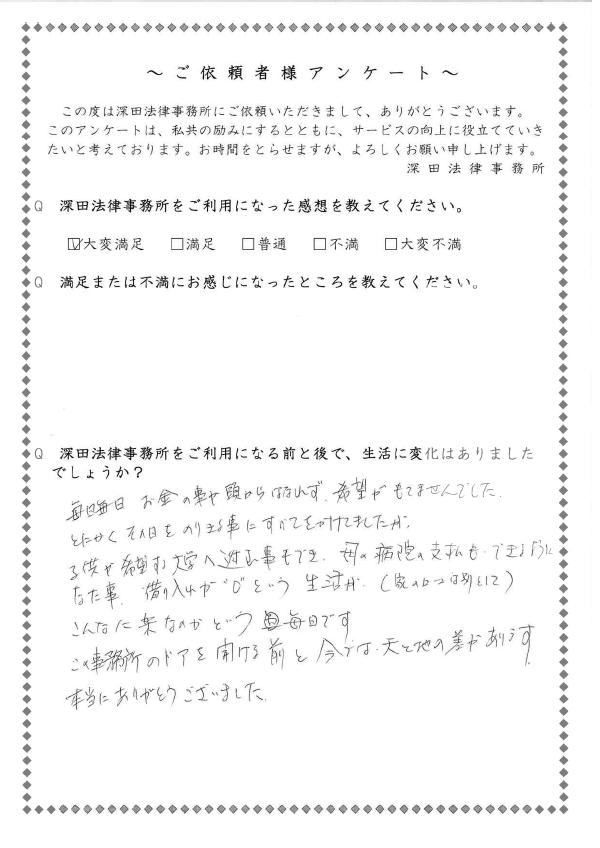 ～ご依頼者様アンケート～
この度は深田法律事務所にご依頼いただきまして、ありがとうございます。
このアンケートは、私共の励みにするとともに、サービスの向上に役立てていき
たいと考えております。お時間をとらせますが、よろしくお願い申し上げます。
深田法律事務所
Q 深田法律事務所をご利用になった感想を教えてください。
☑大変満足 □満足 □普通 □不満 □大変不満
Q 満足または不満にお感じになったところを教えてください。
Q 深田法律事務所をご利用になる前と後で、生活に変化はありました
でしょうか？
毎日毎日 お金の事が頭からはなれず、希望がもてませんでした。
とにかくその日をのりきる事にすべてをかけてましたが、
子供が希望する大学へ進む事もでき、母の病院の支払も、できるように
なった事、借り入れが"0"という 生活が、(家のローンは別として)
こんなに楽なのかという 毎日です
この事務所のドアを開ける前と今では、天と地の差があります。
本当にありがとうございました。